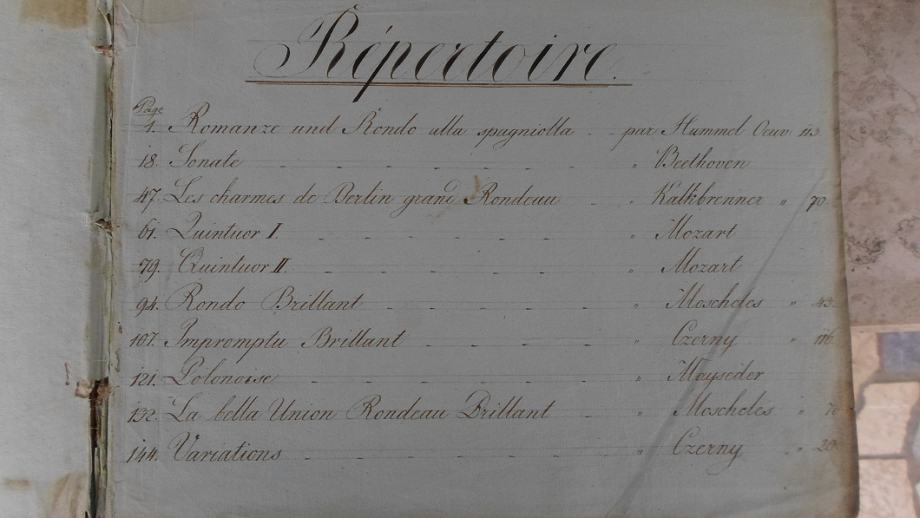 Répertoire.
Page
1. Romanze und Rondo alla spagniolla par Hummel Oeuv 113.
18. Sonate " Beethoven
47. Les charmes de Berlin grand Rondeau " Kalkbrenner " 70
61. Quintuor I. " Mozart
79. Quintuor II. " Mozart
94. Rondo Brillant " Moscheles " 43.
107. Impromptu Brillant " Czerny " 116.
121. Polonoise " Mayseder
132. La bella Union Rondeau Brillant " Moscheles "
144. Variations " Czerny " 20.